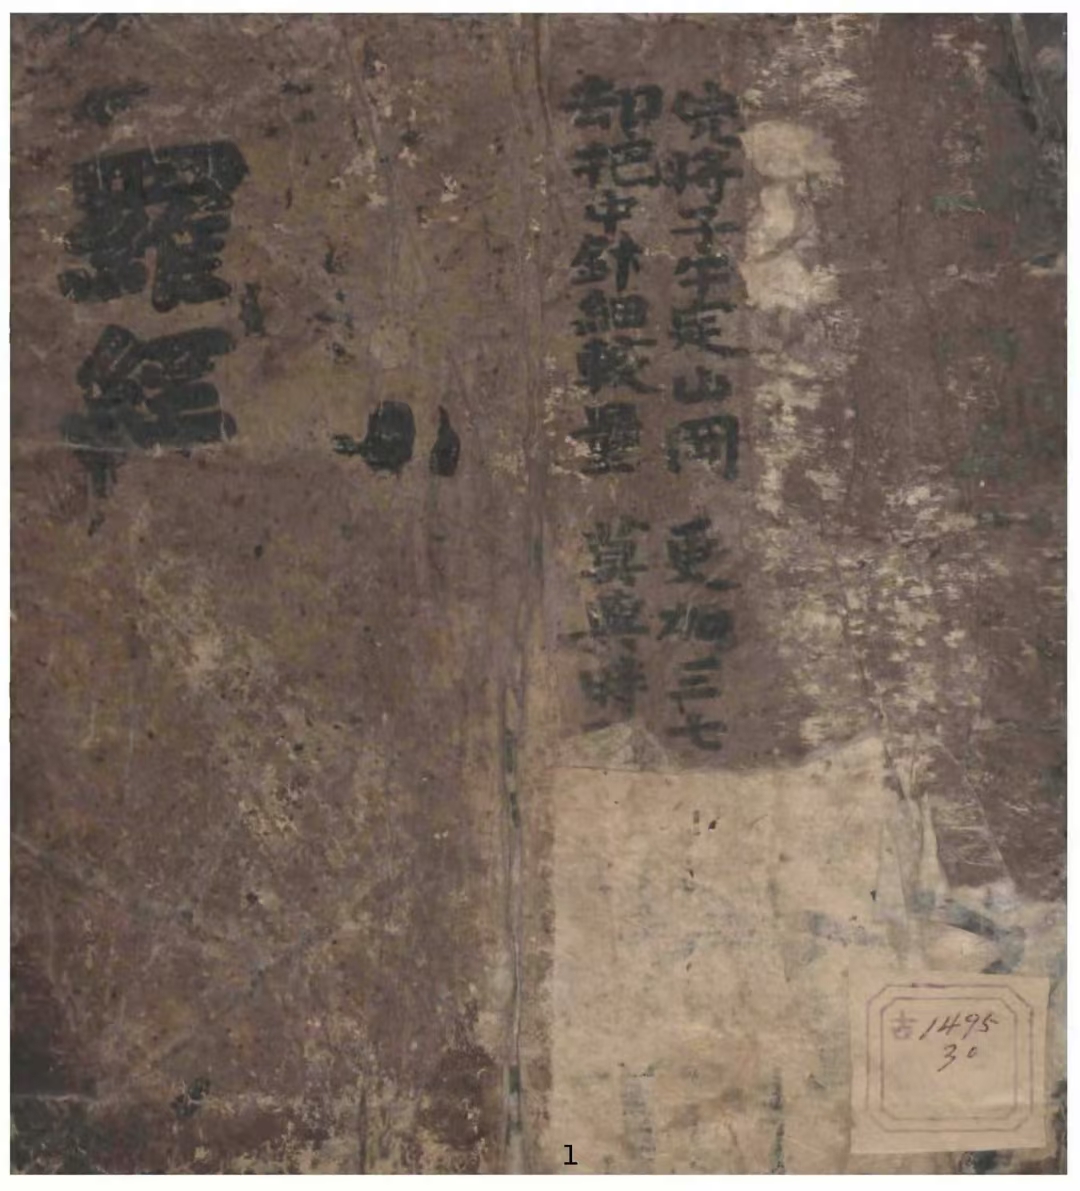 先將子午定山岡 更加三七
却把中針細較量 莫與時
羅經
古1495
30
1